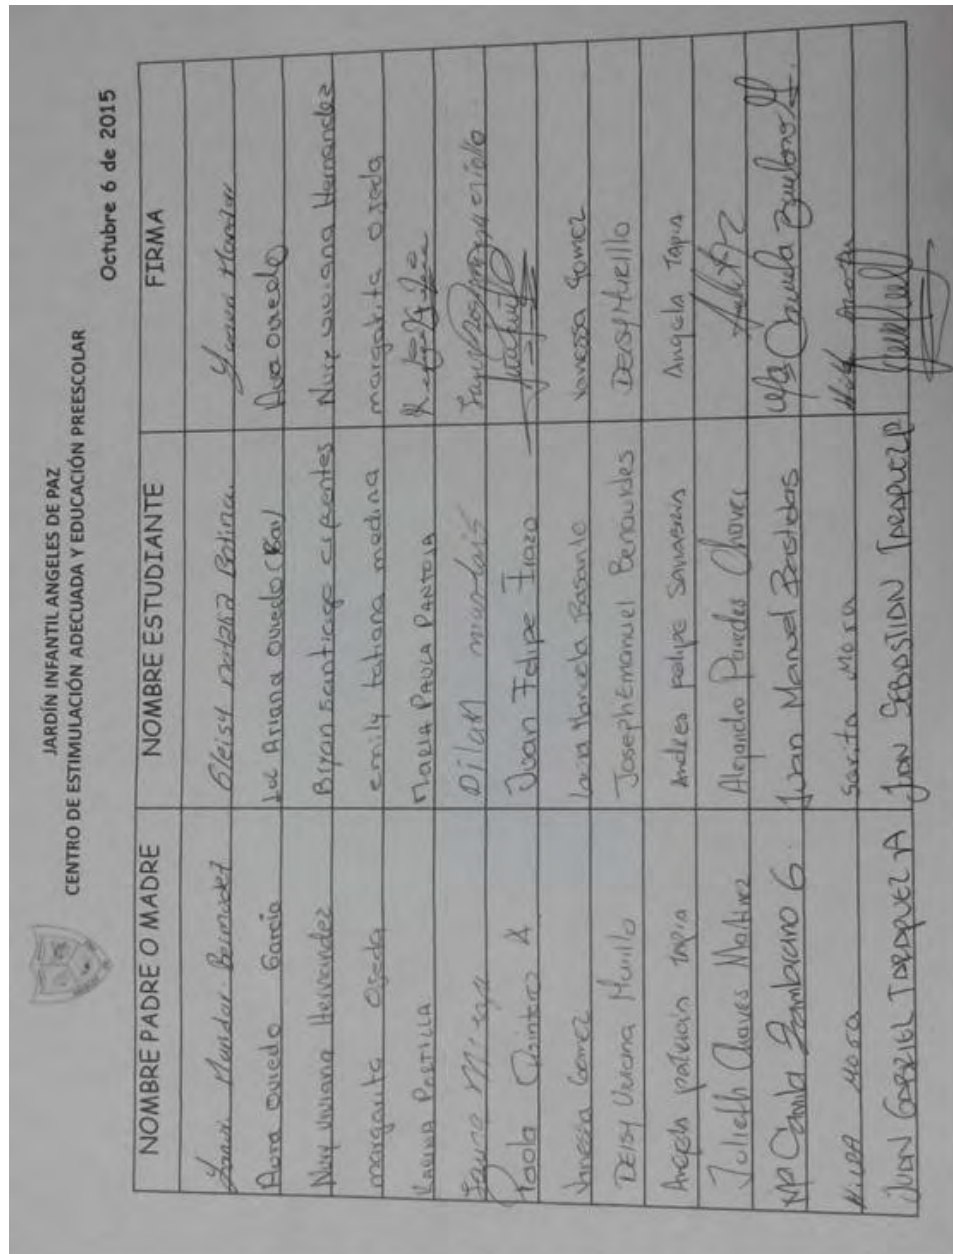 JARDÍN INFANTIL ANGELES DE PAZ
CENTRO DE ESTIMULACIÓN ADECUADA Y EDUCACIÓN PREESCOLAR
Octubre 6 de 2015
NOMBRE PADRE O MADRE NOMBRE ESTUDIANTE FIRMA
Oviedo Garcia Ariana Oviedo Oviedo
Nury Viviana Hernandez Bryan Santiago cifuentes Nury Viviana Hernandez
margarita Ojeda emily tatiana medina margarita Ojeda
KARINA PORTILLA MARIA PAULA PANTOJA
DiLan
Paola Quintero A Juan Felipe
Vanessa Gomez Manuela Basante Vanessa Gomez
DEISY Viviana Murillo Joseph Emanuel Benavides DEISY Murillo
Angela patricia Tapia Andres Felipe Angela Tapia
Julieth Chaves Martinez Alejandro Paredes Chaves
Mª Camila Zambrano G. Juan Manuel Bastidas
Mora Sarita Mora
JUAN GABRIEL JUAN SEBASTIAN